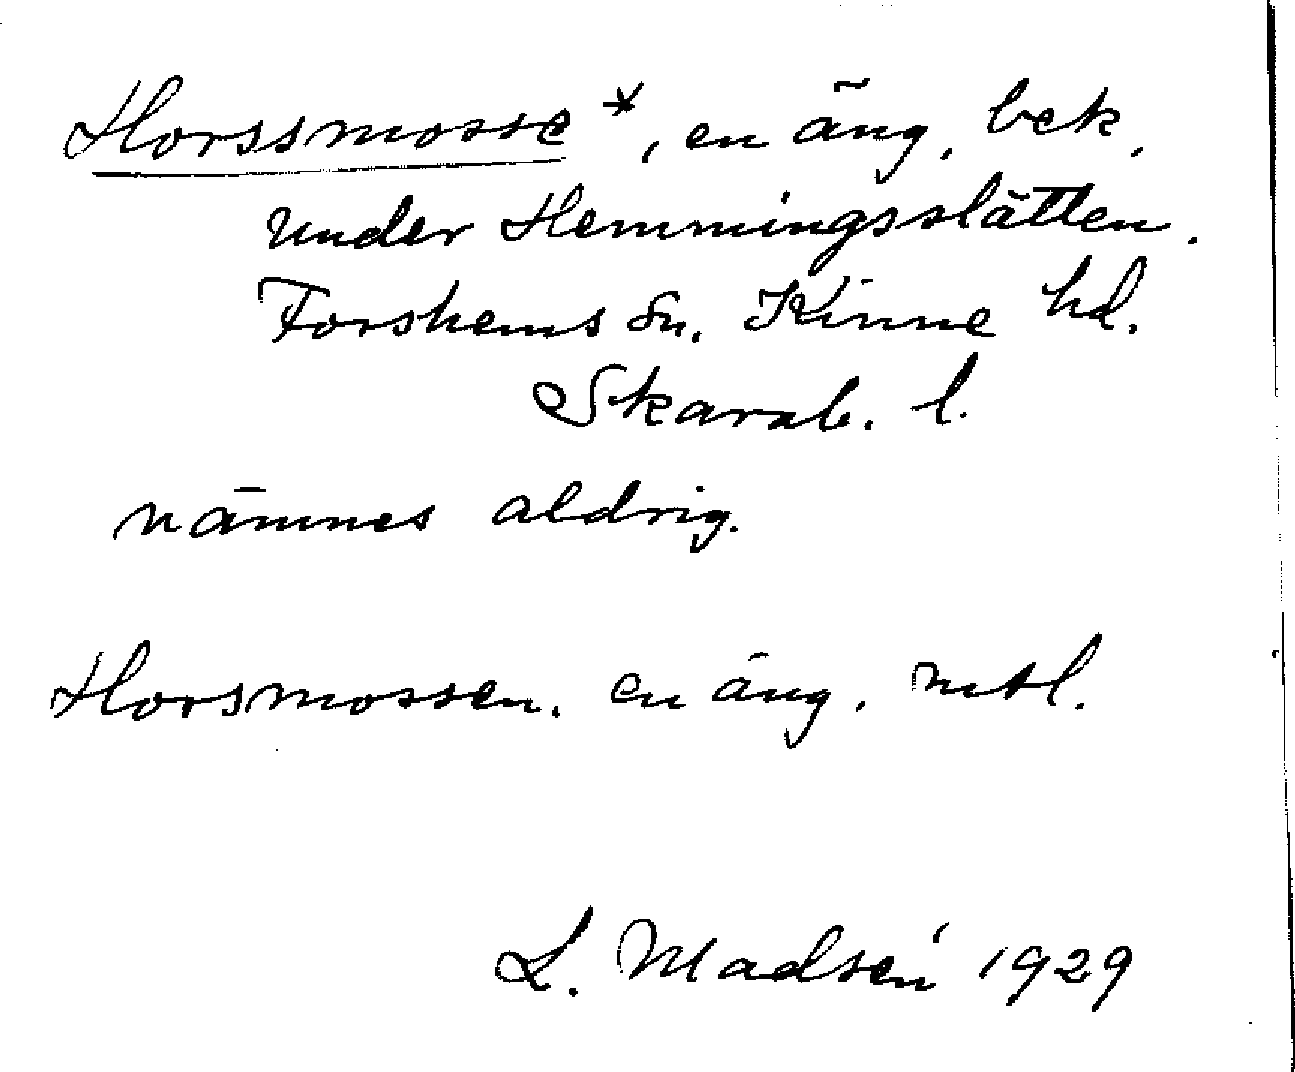 Horssmosse*, en äng, bek,
under Hemmingsslätten.
Forshems sn. Kinne hd.
Skarab. l.
nämnes aldrig.
Horsmossen. en äng. mtl.
L. Madsén 1929